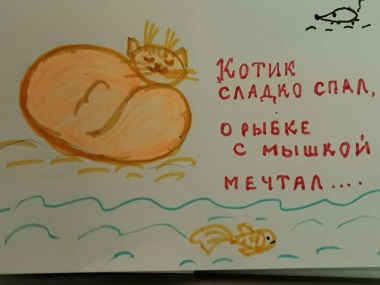 Котик
сладко спал,
о рыбке
с мышкой
мечтал....